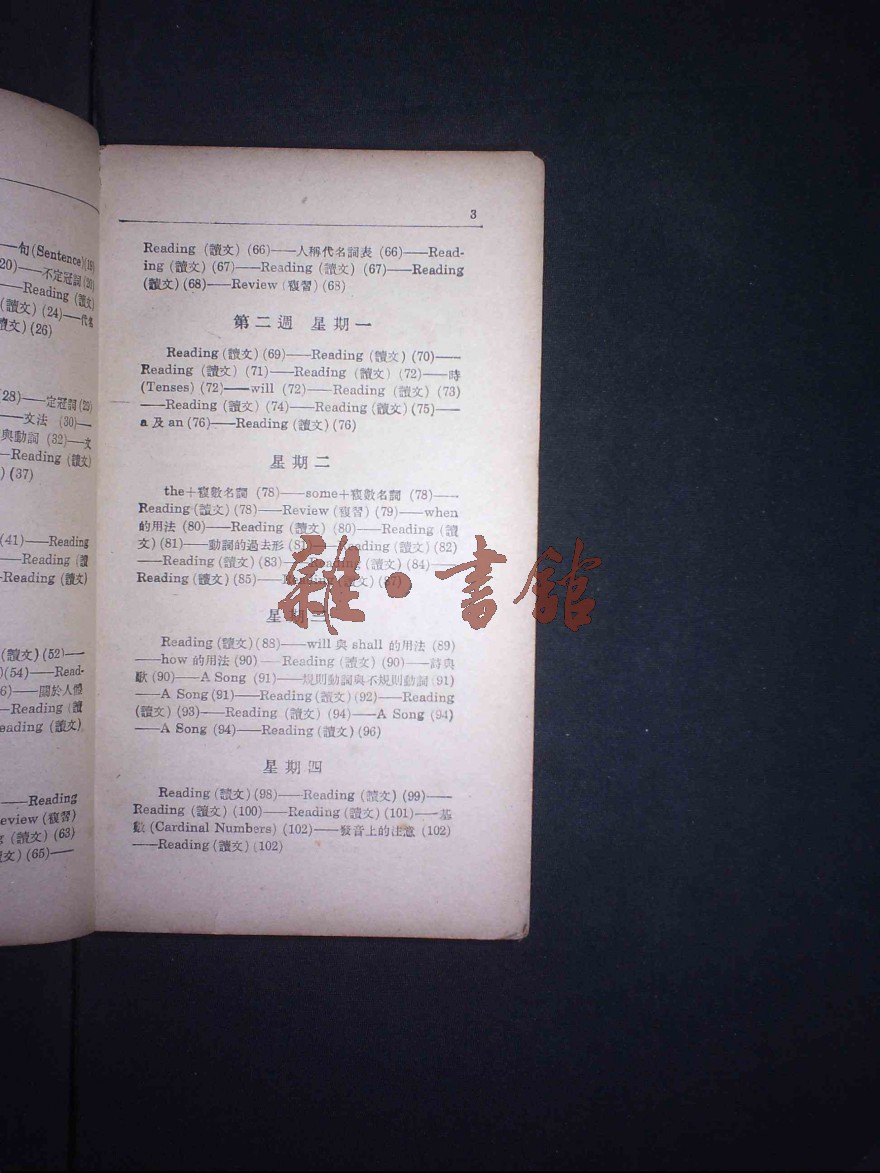 ——句(Sentence)(19)
20)——不定冠詞(20)
——Reading (讀文)
(讀文) (24)——代名
讀文) (26)
(28)——定冠詞(29)
——文法 (30)—
與動詞 (32)—文
—Reading (讀文)
) (37)
(41)——Reading
——Reading (讀
—Reading (讀文)
(讀文) (52)——
)(54)——Read-
6)——關於人體
—Reading (讀
Reading (讀文)
——Reading
Review (複習)
(讀文) (63)
文) (65)——
3
Reading (讀文) (66)——人稱代名詞表 (66)——Read-
ing (讀文) (67)——Reading (讀文) (67)——Reading
(讀文) (68)——Review (複習) (68)
第二週 星期一
Reading (讀文) (69)——Reading (讀文) (70)——
Reading (讀文) (71)——Reading (讀文) (72)——時
(Tenses) (72)——will (72)——Reading (讀文) (73)
——Reading (讀文) (74)——Reading (讀文) (75)——
a 及 an (76)——Reading (讀文) (76)
星期二
the+複數名詞 (78)——some+複數名詞 (78)——
Reading (讀文) (78)——Review (複習) (79)——when
的用法 (80)——Reading (讀文) (80)——Reading (讀
文) (81)——動詞的過去形 (81)——Reading (讀文) (82)
——Reading (讀文) (83)——Reading (讀文) (84)——
Reading (讀文) (85)——Reading (讀文) (87)
雜·書館
星期三
Reading (讀文) (88)——will 與 shall 的用法 (89)
——how 的用法 (90)——Reading (讀文) (90)——詩與
歌 (90)——A Song (91)——規則動詞與不規則動詞 (91)
——A Song (91)——Reading (讀文) (92)——Reading
(讀文) (93)——Reading (讀文) (94)——A Song (94)
——A Song (94)——Reading (讀文) (96)
星期四
Reading (讀文) (98)——Reading (讀文) (99)——
Reading (讀文) (100)——Reading (讀文) (101)——基
數 (Cardinal Numbers) (102)——發音上的注意 (102)
——Reading (讀文) (102)